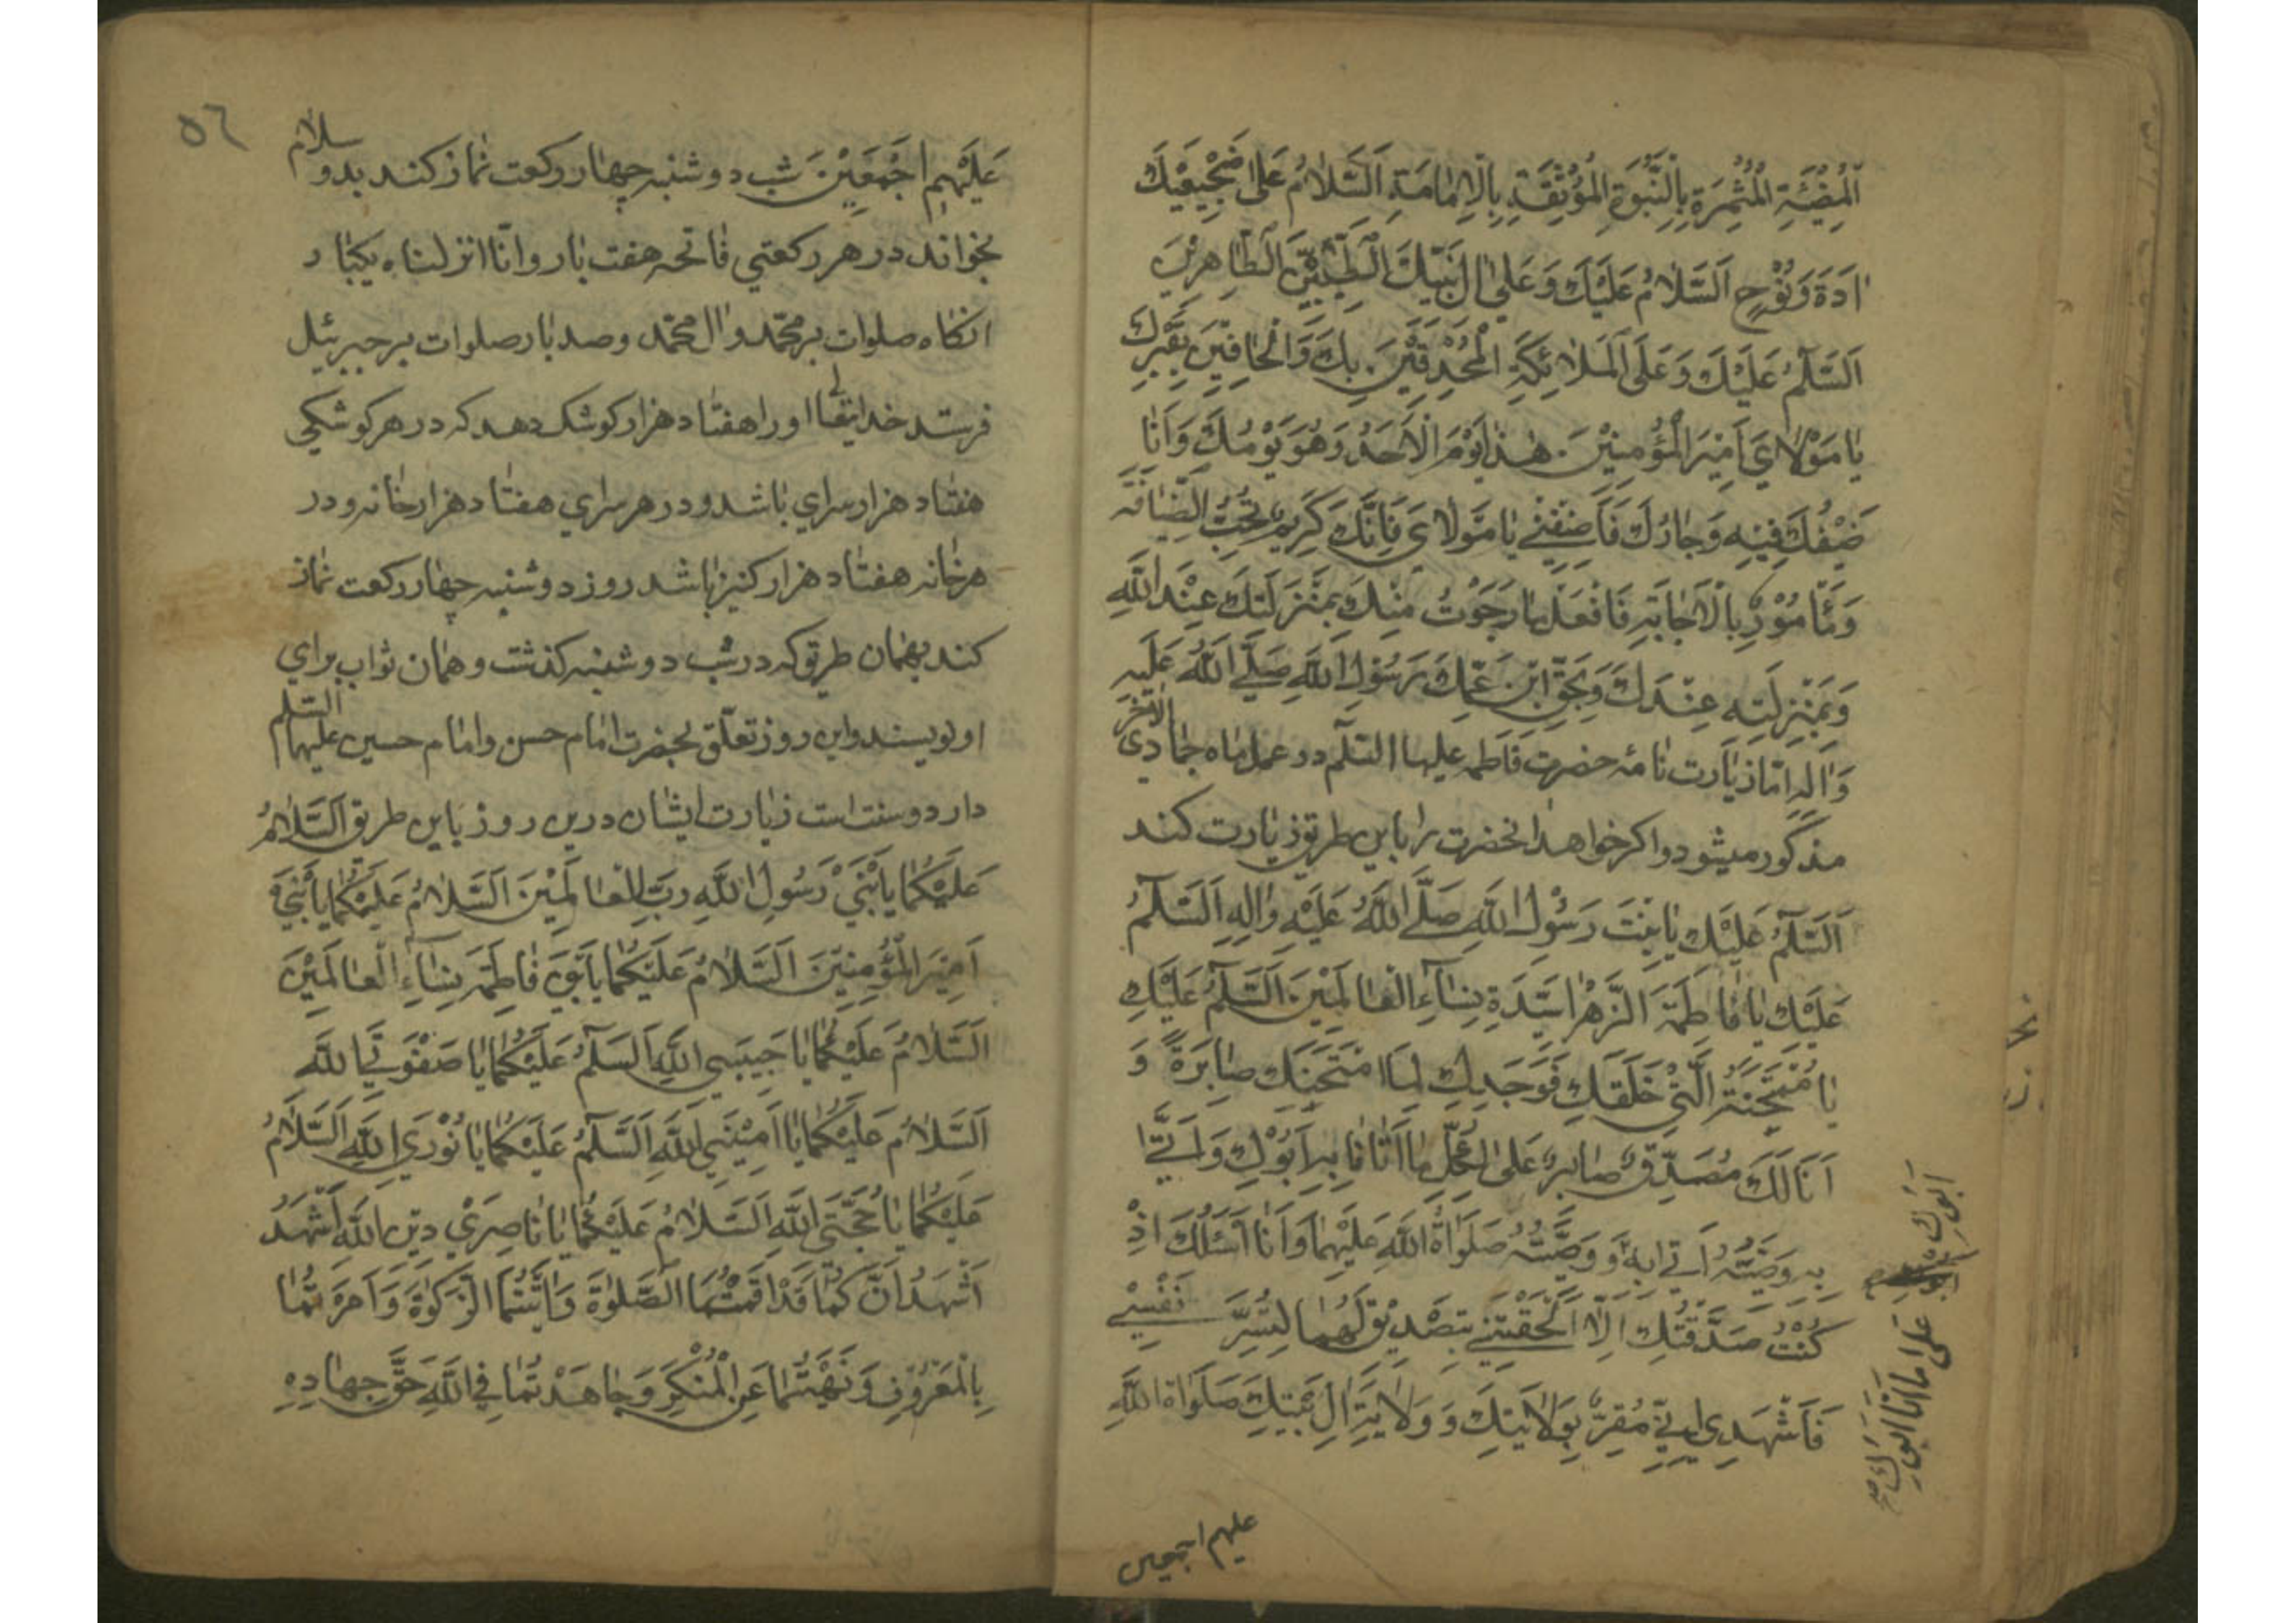 اَلْمُضِيئَةِ الْمُثْمِرَةِ بِالنَّبُوَّةِ الْمُؤْنِقَةِ بِالْاِمَامَةِ اَلسَّلَامُ عَلَى ضَجِيعَيْكَ
اٰدَمَ وَ نُوْحٍ اَلسَّلَامُ عَلَيْكَ وَ عَلٰى اٰلِ بَيْتِكَ الطَّيِّبِيْنَ الطَّاهِرِيْنَ
اَلسَّلَمُ عَلَيْكَ وَ عَلَى الْمَلَائِكَةِ الْمُحْدِقِيْنَ بِكَ وَ الْحَافِّيْنَ بِقَبْرِكَ
يَا مَوْلَايَ اَمِيْرَ الْمُؤْمِنِيْنَ هٰذَا يَوْمُ الْاَحَدِ وَهُوَ يَوْمُكَ وَ اَنَا
ضَيْفُكَ فِيْهِ وَ جَارُكَ فَاَضِفْنِيْ يَا مَوْلَايَ فَاِنَّكَ كَرِيْمٌ تُحِبُّ الضِّيَافَةَ
وَ مَأْمُوْرٌ بِالْاِجَابَةِ فَافْعَلْ مَا رَجَوْتُ مِنْكَ بِمَنْزِلَتِكَ عِنْدَ اللّٰهِ
وَ بِمَنْزِلَتِهِ عِنْدَكَ وَ بِحَقِّ ابْنِ عَمِّكَ رَسُوْلِ اللّٰهِ صَلَّى اللّٰهُ عَلَيْهِ
وَ اٰلِهِ امّا زيارت نامهٔ حضرت فاطمه عليها السّلم در عمل ماه جمادى الاخر
مذكور ميشود و اكر خواهد انحضرت را باين طريق زيارت كند
اَلسَّلَمُ عَلَيْكِ يَا بِنْتَ رَسُوْلِ اللّٰهِ صَلَّى اللّٰهُ عَلَيْهِ وَ اٰلِهِ اَلسَّلَمُ
عَلَيْكِ يَا فَاطِمَةَ الزَّهْرَا سَيِّدَةِ نِسَاءِ الْعَالَمِيْنَ اَلسَّلَمُ عَلَيْكِ
يَا مُمْتَحَنَةُ الَّتِيْ خَلَقَكِ فَوَجَدِكِ لِمَا امْتَحَنَكِ صَابِرَةً وَ
اَنَا لَكِ مُصَدِّقٌ صَابِرٌ عَلٰى مَا اَتَانَا بِهِ اَبُوْكِ وَ
بِهِ وَصِيُّهُ صَلَوَاةُ اللّٰهِ عَلَيْهِمَا وَ اَنَا اَسْئَلُكَ اِذْ
كُنْتُ صَدَّقْتُكِ اِلَّا اَلْحَقْتِنِيْ بِتَصْدِيْقٍ لَهُمَا لِتُسَرَّ نَفْسِيْ
فَاَشْهَدِى اِنِّيْ مُقِرٌّ بِوَلَايَتِكِ وَ وَلَايَةِ اٰلِ بَيْتِكِ صَلَوَاةُ اللّٰهِ
عليهم اجمعين
اَبُوكِ
عَلَى مَا اَتَانَا اَبُوكِ
٥٦
عَلَيْهِم اَجْمَعِيْنَ شب دوشنبه چهار ركعت نماز كند بدو سلام
بخواند در هر ركعتي فاتحه هفت بار و انّا انزلناه يكبار
انكاه صلوات بر محمّد و ال محمّد و صد بار صلوات بر جبرئيل
فرستد خدايتعالى او را هفتاد هزار كوشك دهد كه در هر كوشكي
هفتاد هزار سراي باشد و در هر سراي هفتاد هزار خانه و در
هر خانه هفتاد هزار كنيز باشد روز دوشنبه چهار ركعت نماز
كند بهمان طريق كه در شب دوشنبه كذشت و همان ثواب براي
او نويسند و اين روز تعلّق بحضرت امام حسن و امام حسين عليهما السلم
دارد و سنت است زيارت ايشان درين روز باين طريق اَلسَّلَامُ
عَلَيْكُمَا يَا بْنَيْ رَسُوْلِ اللّٰهِ رَبِّ الْعَالَمِيْنَ اَلسَّلَامُ عَلَيْكُمَا يَا بْنَيْ
اَمِيْرَ الْمُؤْمِنِيْنَ اَلسَّلَامُ عَلَيْكُمَا يَا بْنَيْ فَاطِمَةَ نِسَاءِ الْعَالَمِيْنَ
اَلسَّلَامُ عَلَيْكُمَا يَا حَبِيبَيِ اللّٰهِ اَلسَّلَمُ عَلَيْكُمَا يَا صَفْوَتَيِ اللّٰهِ
اَلسَّلَامُ عَلَيْكُمَا يَا اَمِيْنَيِ اللّٰهِ اَلسَّلَمُ عَلَيْكُمَا يَا نُوْرَيِ اللّٰهِ اَلسَّلَامُ
عَلَيْكُمَا يَا حُجَّتَيِ اللّٰهِ اَلسَّلَامُ عَلَيْكُمَا يَا نَاصِرَيْ دِيْنِ اللّٰهِ اَشْهَدُ
اَشْهَدُ اَنَّكُمَا قَدْ اَقَمْتُمَا الصَّلٰوةَ وَ اٰتَيْتُمَا الزَّكٰوةَ وَ اَمَرْتُمَا
بِالْمَعْرُوْفِ وَ نَهَيْتُمَا عَنِ الْمُنْكَرِ وَ جَاهَدْتُمَا فِي اللّٰهِ حَقَّ جِهَادِهِ